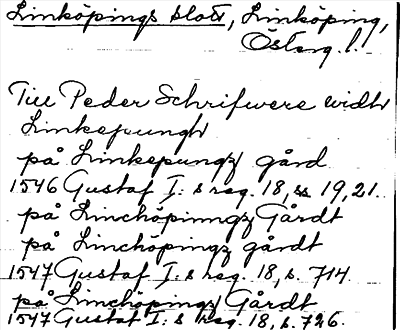 Linköpings slott, Linköping,
Österg. l.
Till Peder Schrifwere widh
Linkepungh
på Linkepungz gård
1546 Gustaf I:s reg. 18, ss 19, 21.
på Linchöpinngz Gårdt
på Linchöpingz gårdt
1547 Gustaf I:s reg. 18, s. 714.
på Linchöpingz Gårdt
1547 Gustaf I:s reg. 18, s. 726.